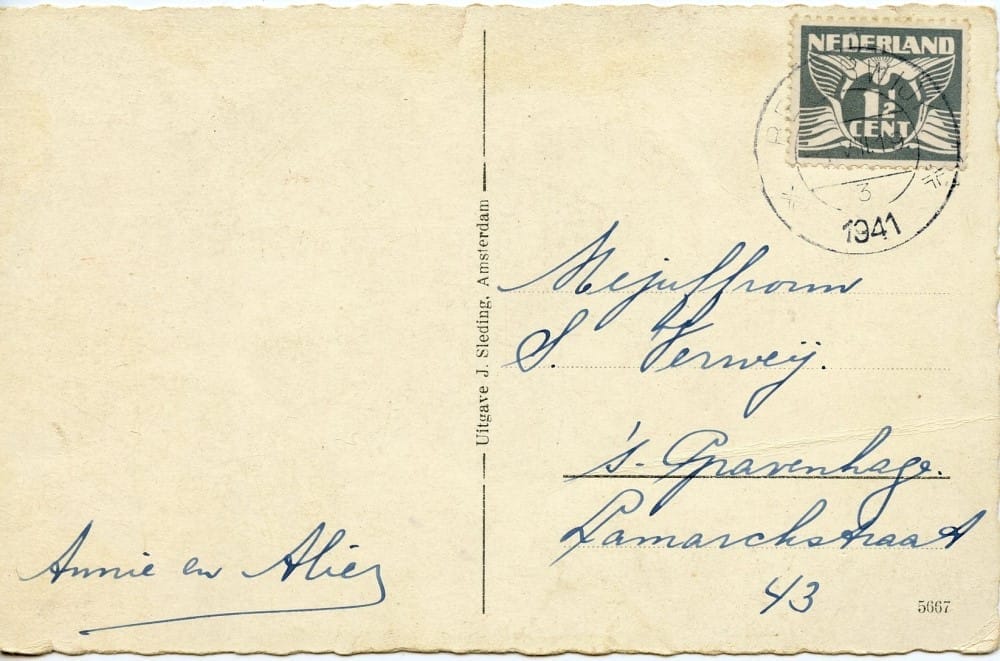 NEDERLAND
1½
CENT
3
1941
Uitgave J. Sleding, Amsterdam
Mejuffrouw
S. Verweij.
's-Gravenhage.
Lamarckstraat
43
Annie en Alie
5667